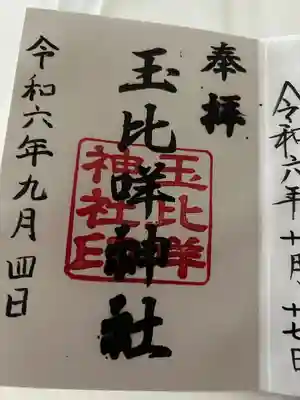 令和六年十月十七日
奉拝
玉比咩神社
玉比咩
神社印
令和六年九月四日